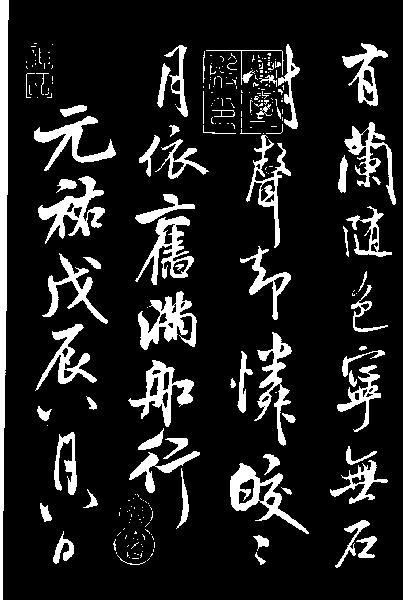 有蘭随色寧無石
對聲却憐皎〻
月依舊滿船行
元祐戊辰八月八日